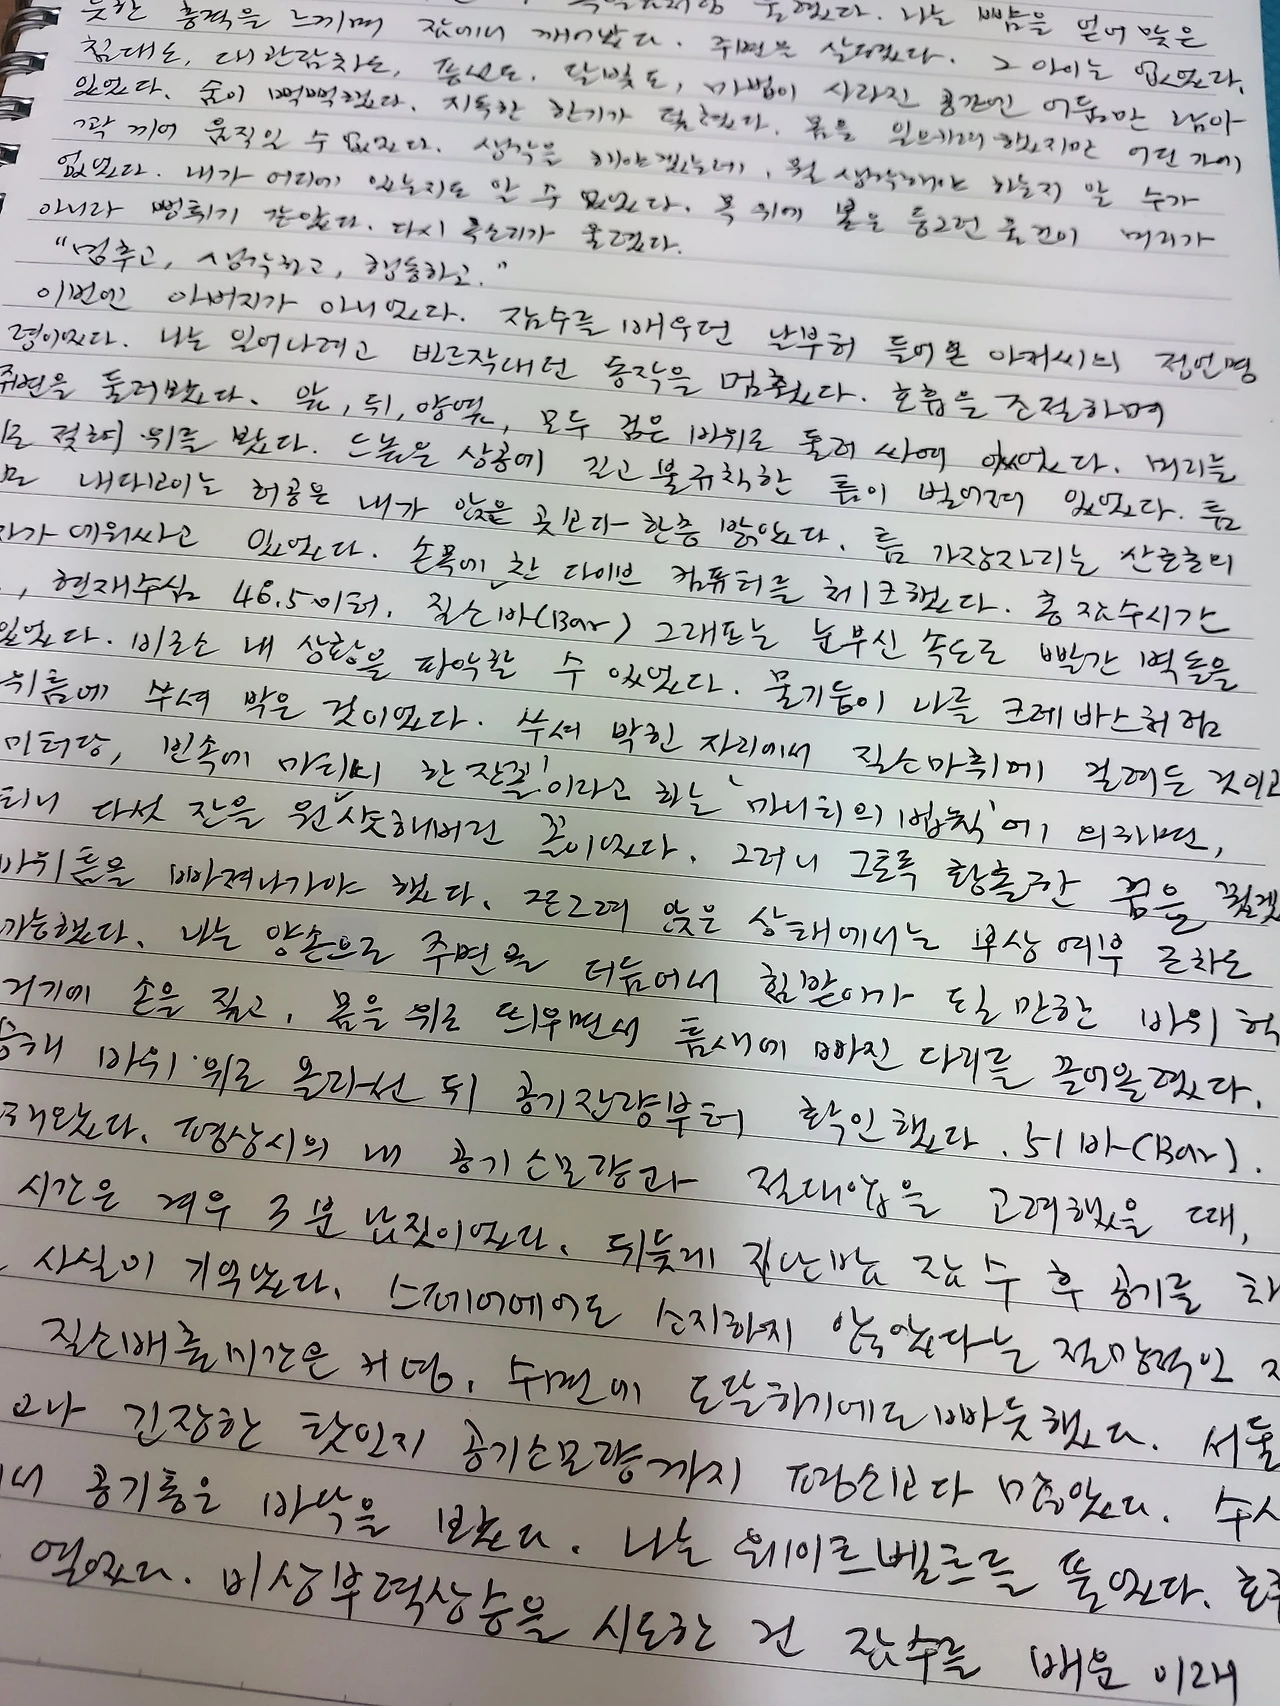 듯한 충격을 느끼며 잠에서 깨어났다. 주변을 살폈다. 나는 뺨을 얻어맞은
침대도, 대관람차도, 풍선도, 달빛도, 마법이 사라진 공간엔 어둠만 남아
있었다. 숨이 먹먹했다. 지독한 한기가 덮쳤다. 몸을 일으키려 했지만 어딘가에
꽉 끼어 움직일 수 없었다. 생각을 해야겠는데, 뭘 생각해야 하는지 알 수가
없었다. 내가 어디에 있는지도 알 수 없었다. 목 위에 붙은 둥그런 물건이 머리가
아니라 뻥튀기 같았다. 다시 목소리가 울렸다.
"멈추고, 생각하고, 행동하고."
이번엔 아버지가 아니었다. 잠수를 배우던 날부터 들어온 아저씨의 정언명
령이었다. 나는 일어나려고 바르작대던 동작을 멈췄다. 호흡을 조절하며
주변을 둘러봤다. 앞, 뒤, 양옆, 모두 검은 바위로 둘러 싸여 있었다. 머리를
젖혀 위를 봤다. 드높은 상공에 길고 불규칙한 틈이 벌어져 있었다. 틈
내다보이는 허공은 내가 앉은 곳보다 한층 밝았다. 틈 가장자리는 산호초의
에워싸고 있었다. 손목에 찬 다이브 컴퓨터를 체크했다. 총 잠수시간
, 현재수심 46.5미터. 질소바(Bar) 그래프는 눈부신 속도로 빨간 벽돌을
있었다. 비로소 내 상황을 파악할 수 있었다. 물기둥이 나를 크레바스처럼
위틈에 쑤셔 박은 것이었다. 쑤셔 박힌 자리에서 질소마취에 걸려든 것이고
미터당, 빈속에 마티니 한 잔꼴'이라고 하는 '마티니의 법칙'에 의하면,
티니 다섯 잔을 원샷해버린 꼴이었다. 그러니 그토록 황홀한 꿈을 꿨겠
바위틈을 빠져나가야 했다. 쪼그려 앉은 상태에서는 부상 여부 조차도
가능했다. 나는 양손으로 주변을 더듬어서 힘받이가 될 만한 바위 턱
거기에 손을 짚고, 몸을 위로 띄우면서 틈새에 빠진 다리를 끌어올렸다.
바위 위로 올라선 뒤 공기잔량부터 확인했다. 51바(Bar).
평상시의 내 공기소모량과 절대압을 고려했을 때,
시간은 겨우 3분 남짓이었다. 뒤늦게 지난밤 잠수 후 공기를
사실이 기억났다. 스페어에어도 소지하지 않았다는 절망적인
질소배출시간은커녕, 수면에 도달하기에도 빠듯했다. 서둘
긴장한 탓인지 공기소모량까지 평소보다 많았다. 수
공기통은 바닥을 보았다. 나는 웨이트벨트를 풀었다.
열었다. 비상부력상승을 시도한 건 잠수를 배운 이래